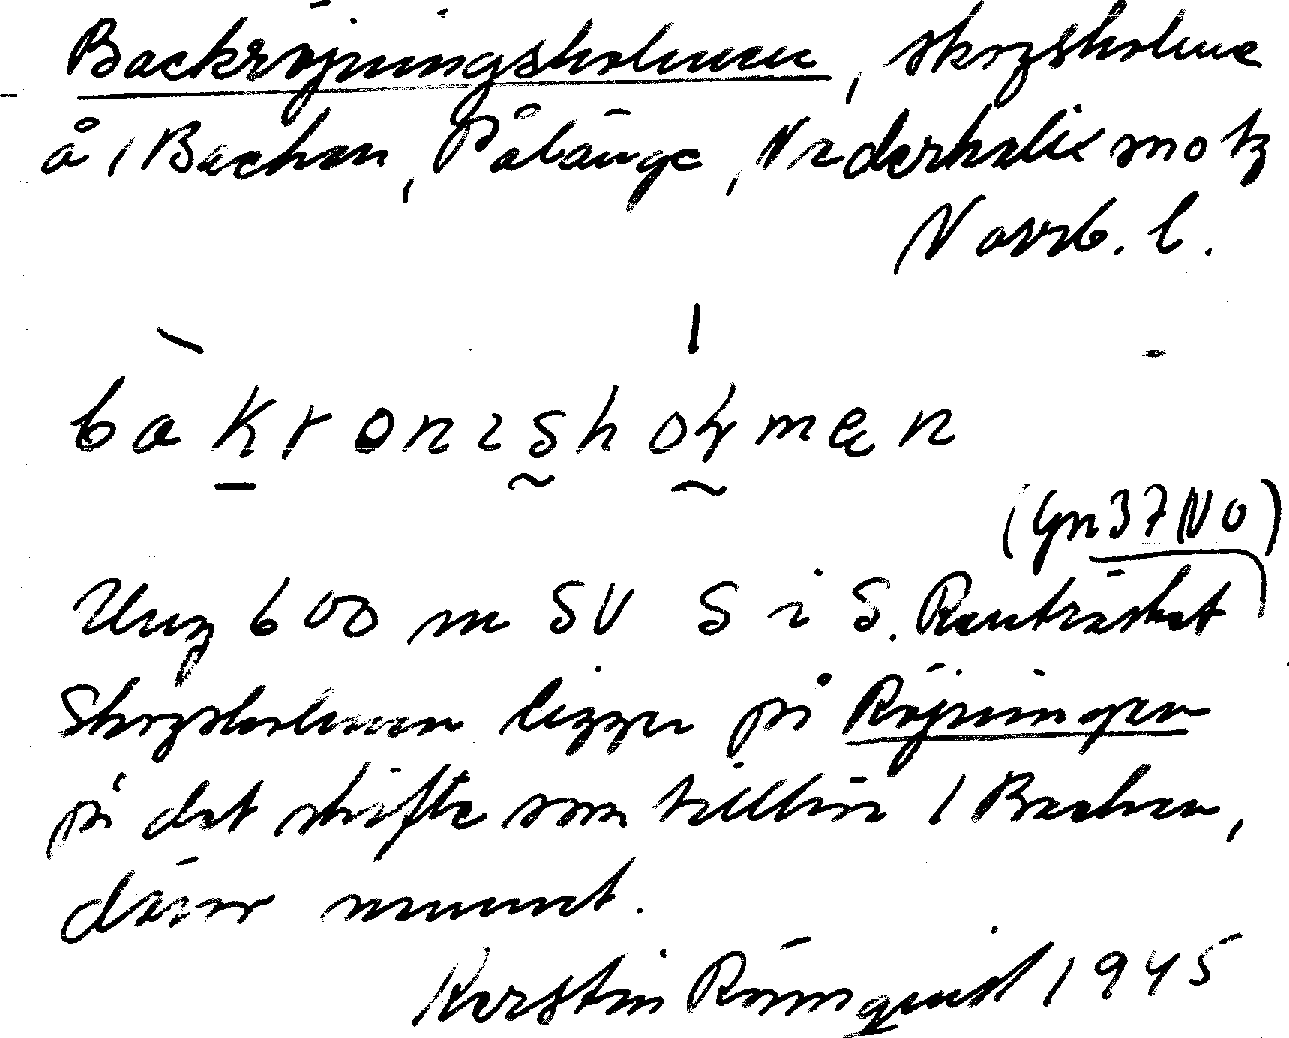 Backröjningsholmen, skogsholme
å 1 Backen, Pålänge, Nederkalix motz
Norrb. l.
bakronɩsholmen
(Gn 37 NO)
Ung 600 m SV S i S. Renträsket
Skogsholmen ligger på Röjningen
på det skifte som tillhör 1 Backen,
därav namnet.
Kerstin Rönnquist 1945